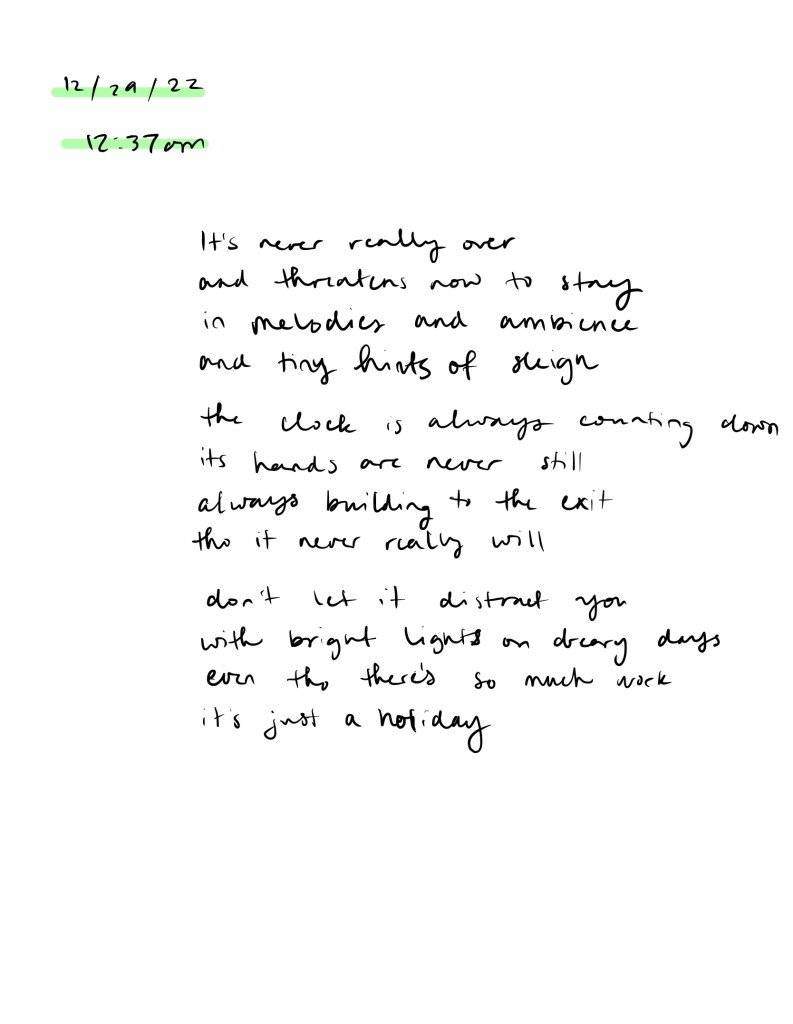 12/29/22
12:37am
It's never really over
and threatens now to stay
in melodies and ambience
and tiny hints of sleigh
the clock is always counting down
its hands are never still
always building to the exit
tho it never really will
don't let it distract you
with bright lights on dreary days
even tho there's so much work
it's just a holiday